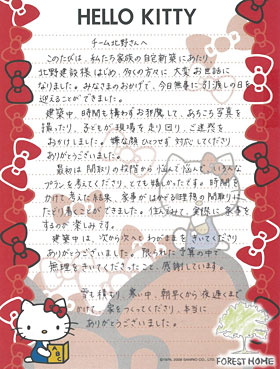 HELLO KITTY
チーム北野さんへ
このたびは、私たち家族の自宅新築にあたり、
北野建設様はじめ、多くの方々に大変お世話に
なりました。みなさまのおかげで、今日無事に引渡しの日を
迎えることができました。
建築中、時間も構わずお邪魔して、あちこち写真を
撮ったり、子どもが現場を走り回り、ご迷惑を
おかけしました。嫌な顔ひとつせず対応してくださり
ありがとうございました。
最初は間取りの段階から悩んで悩んで、いろんな
プランを考えてくださり、とても嬉しかったです。時間を
かけて考えた結果、家事がはかどる理想の間取りに
たどり着くことができました。住んでみて、実際に家事を
するのが楽しみです。
建築中は、次から次へとわがままをきいてくださり
ありがとうございました。限られた予算の中で
無理をきいてくださったこと、感謝しています。
雪も積もり、寒い中、朝早くから夜遅くまで
かけて、家をつくってくださり、本当に
ありがとうございました。
ABC
SANRIO CO., LTD.
FOREST HOME